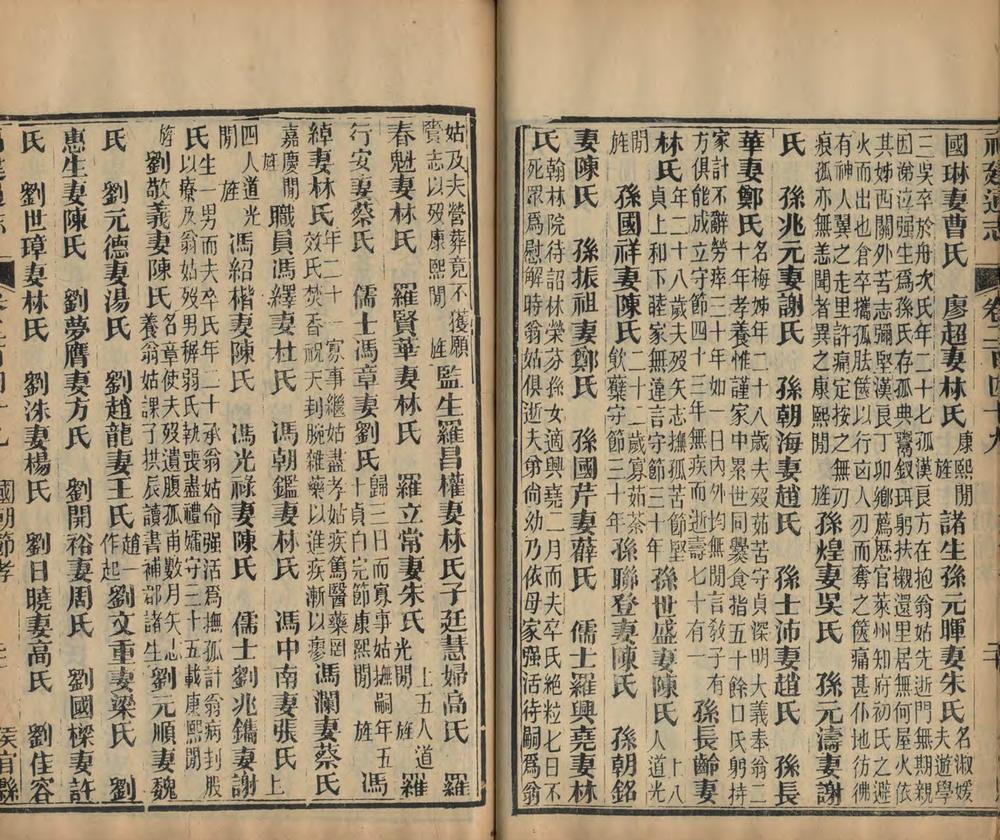 福建通志 卷二百四十九 二十
國琳妻曹氏 廖超妻林氏 康熙閒旌 諸生孫元暉妻朱氏 名淑媛夫遊學
三吳卒於舟次氏年二十七孤漢良方在抱翁姑先逝門無期親
因謝泣强生爲孫氏存孤典鬻釵珥躬扶櫬還里居無何屋火依
其姊西關外苦志彌堅漢良丁卯鄉薦歷官萊州知府初氏之避
火而出也倉卒攜孤胠篋以行卤人刃而奪之篋痛甚仆地彷彿
有神人翼之走里許痛定按之無刃痕孤亦無恙聞者異之康熙閒旌 孫煌妻吳氏 孫元濤妻謝
氏 孫兆元妻謝氏 孫朝海妻趙氏 孫士沛妻趙氏 孫長
華妻鄭氏 名梅姊年二十八歲夫歿茹苦守貞深明大義奉翁二十年孝養惟謹家中累世同爨食指五十餘口氏躬持
家計不辭勞瘁三十年如一日內外均無閒言敎子有方俱能成立守節四十三年無疾而逝壽七十有一 孫長齡妻
林氏 年二十八歲夫歿矢志撫孤苦節堅貞上和下睦家無違言守節三十年 孫世盛妻陳氏 上八人道光
閒旌 孫國祥妻陳氏 二十二歲寡茹荼飲蘗守節三十年 孫聯登妻陳氏 孫朝銘
妻陳氏 孫振祖妻鄭氏 孫國芹妻薛氏 儒士羅興堯妻林
氏 翰林院待詔林榮芬孫女適興堯二月而夫卒氏絶粒七日不死眾爲慰解時翁姑俱逝夫弟尙幼乃依母家强活待嗣爲翁
姑及夫營葬竟不獲願賷志以歿康熙閒旌 監生羅昌權妻林氏子廷慧婦高氏 羅
春魁妻林氏 羅賢華妻林氏 羅立常妻朱氏 上五人道光閒旌 羅
行安妻蔡氏 儒士馮章妻劉氏 歸三日而寡事姑撫嗣年五十貞白完節康熙閒旌 馮
綽妻林氏 年二十一寡事繼姑盡孝姑疾篤醫藥罔效氏焚香祝天刲腕雜藥以進疾漸以瘳 馮瀾妻蔡氏
嘉慶閒旌 職員馮繹妻杜氏 馮朝鑑妻林氏 馮中南妻張氏 上
四人道光閒旌 馮紹楷妻陳氏 馮光祿妻陳氏 儒士劉兆鐫妻謝
氏 生一男而夫卒氏年二十承翁姑命强活爲撫孤計翁病刲股以療及翁姑歿男稺弱氏執喪盡禮孀守三十五載康熙閒
旌 劉敬義妻陳氏 名章使夫歿遺腹孤甫數月矢志養翁姑課子拱辰讀書補郡諸生 劉元順妻魏
氏 劉元德妻湯氏 劉趙龍妻王氏 趙一作起 劉文重妻梁氏 劉
惠生妻陳氏 劉夢鷹妻方氏 劉開裕妻周氏 劉國樑妻許
氏 劉世璋妻林氏 劉洙妻楊氏 劉日曉妻高氏 劉佳容
國朝節孝 侯官縣